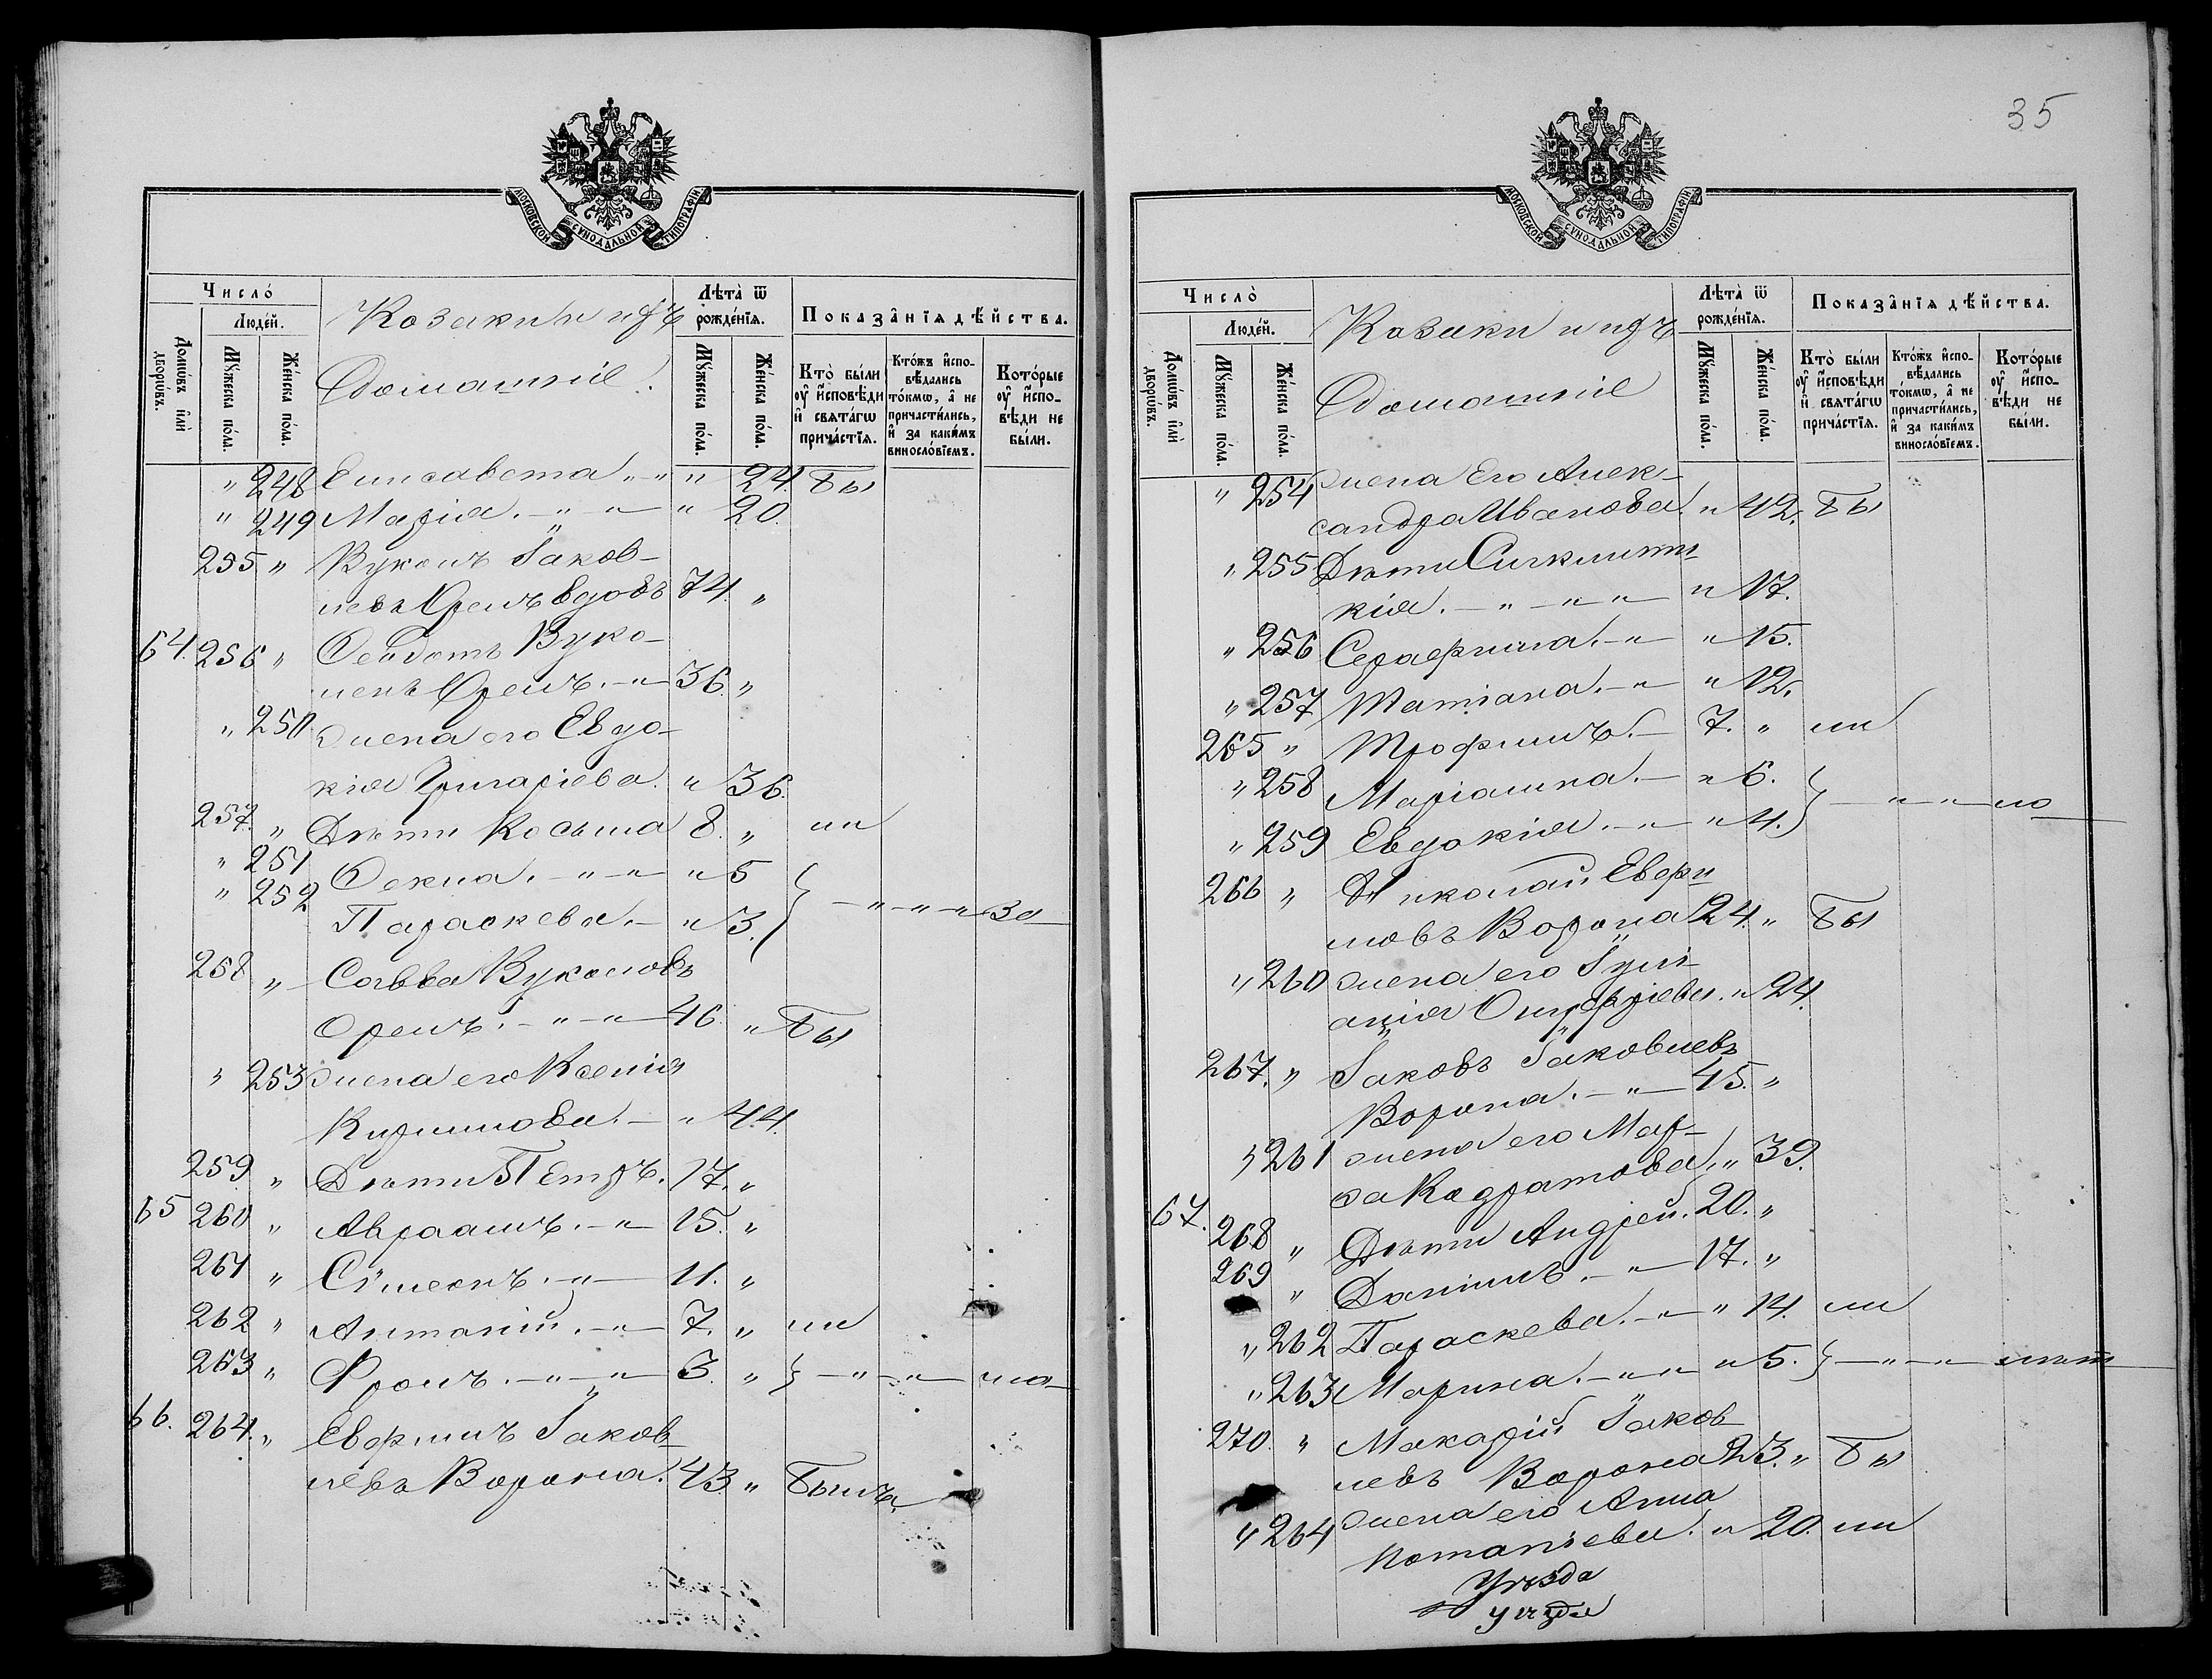 МОСКОВСКОЙ СУНОДАЛЬНОЙ ТИПОГРАФІИ
Число́
Людей.
Домѡвъ и҆лѝ дворѡвъ.
Мꙋжеска по́ла.
Же́нска по́ла.
Козаки и ихъ
Домашніе.
Лѣта̀ ѿ рожде́нїѧ.
Мꙋжеска по́ла.
Же́нска по́ла.
Показа̂нїѧ дѣ́йства.
Кто̀ были оу҆ и҆сповѣди и҆ свѧта́гѡ прича́стїѧ.
Кто́жъ и҆спо-вѣдались то́кмѡ, а҆ не причасти́лись, и҆ за каки́мъ винословїемъ.
Кото́рые оу҆ и҆спо-вѣди не бы́ли.
" 248 Елисавета " " " 24. Бы
" 249 Марія. - " - " - " 20.
255 " Вуколъ Іаков-
левъ Орелъ вдовъ 74. "
64. 256 " Ѳеодотъ Вуко-
ловъ Орелъ. - " - 36. "
" 250 жена его Евдо-
кія Григоріева. " 36.
257. " Дѣти Косьма 8. " ли
" 251 Ѳекла. - " - " - " 5
" 252 Параскева. - " 3. } - " - " - " - за
258 " Савва Вуколовъ
Орелъ. - " - " - 46 " Бы
" 253 жена его Ксенія
Кирилова. - " 44.
259. " Дѣти Петръ. 17. "
65 260 " Авраамъ. - " - 15. "
261 " Сѵмеонъ. - " - 11. "
262 " Антоній. - " - 7. " ли
263 " Фролъ. - " - " - 3. " } - " - " - ма-
66. 264. " Евфимъ Іаков-
левъ Ворона. 43. " Былъ
35
МОСКОВСКОЙ СУНОДАЛЬНОЙ ТИПОГРАФІИ
Число̀
Людей.
Домѡвъ и҆лѝ дворѡвъ.
Мꙋжеска по́ла.
Же́нска по́ла.
Козаки и ихъ
Домашніе
Лѣта̀ ѿ рожде́нїѧ.
Мꙋжеска по́ла.
Же́нска по́ла.
Показа̂нїѧ дѣ́йства.
Кто̀ были оу҆ и҆сповѣди и҆ свѧта́гѡ прича́стїѧ.
Кто́жъ и҆спо-вѣдались то́кмѡ, а҆ не причасти́лись, и҆ за каки́мъ винословїемъ.
Кото́рые оу҆ и҆спо-вѣди не бы́ли.
" 254 жена Его Алек-
сандра Иванова. " 42. Бы
" 255 Дѣти Сигклити-
кія. - " - " - " " 17.
" 256 Серафима. - " " 15.
" 257 Татіана. - " " 12.
265 " Трофимъ. - 7. " ли
" 258 Маріамна. - " 6.
" 259 Евдокія. - " - " 4. } - " - " - ло
266 " Николай Евфи-
мовъ Ворона 24. " Бы
" 260 жена его Іулі-
анія Онуфріева. " 24.
267. " Іаковъ Іаковлевъ
Ворона. - " - 45. "
" 261 жена его Мар-
ѳа Кодратова. " 39.
67. 268 " Дѣти Андрей. 20. "
269 " Даніилъ. - " - 17. "
" 262 Параскева. - " - " 14. ли
" 263 Марина. - " - " " 5. } - " - " - лѣт
270. " Макарій Іаков-
левъ Ворона 23. " Бы
" 264 жена его Анна
Потапіева. " 20. ли
Уѣзда